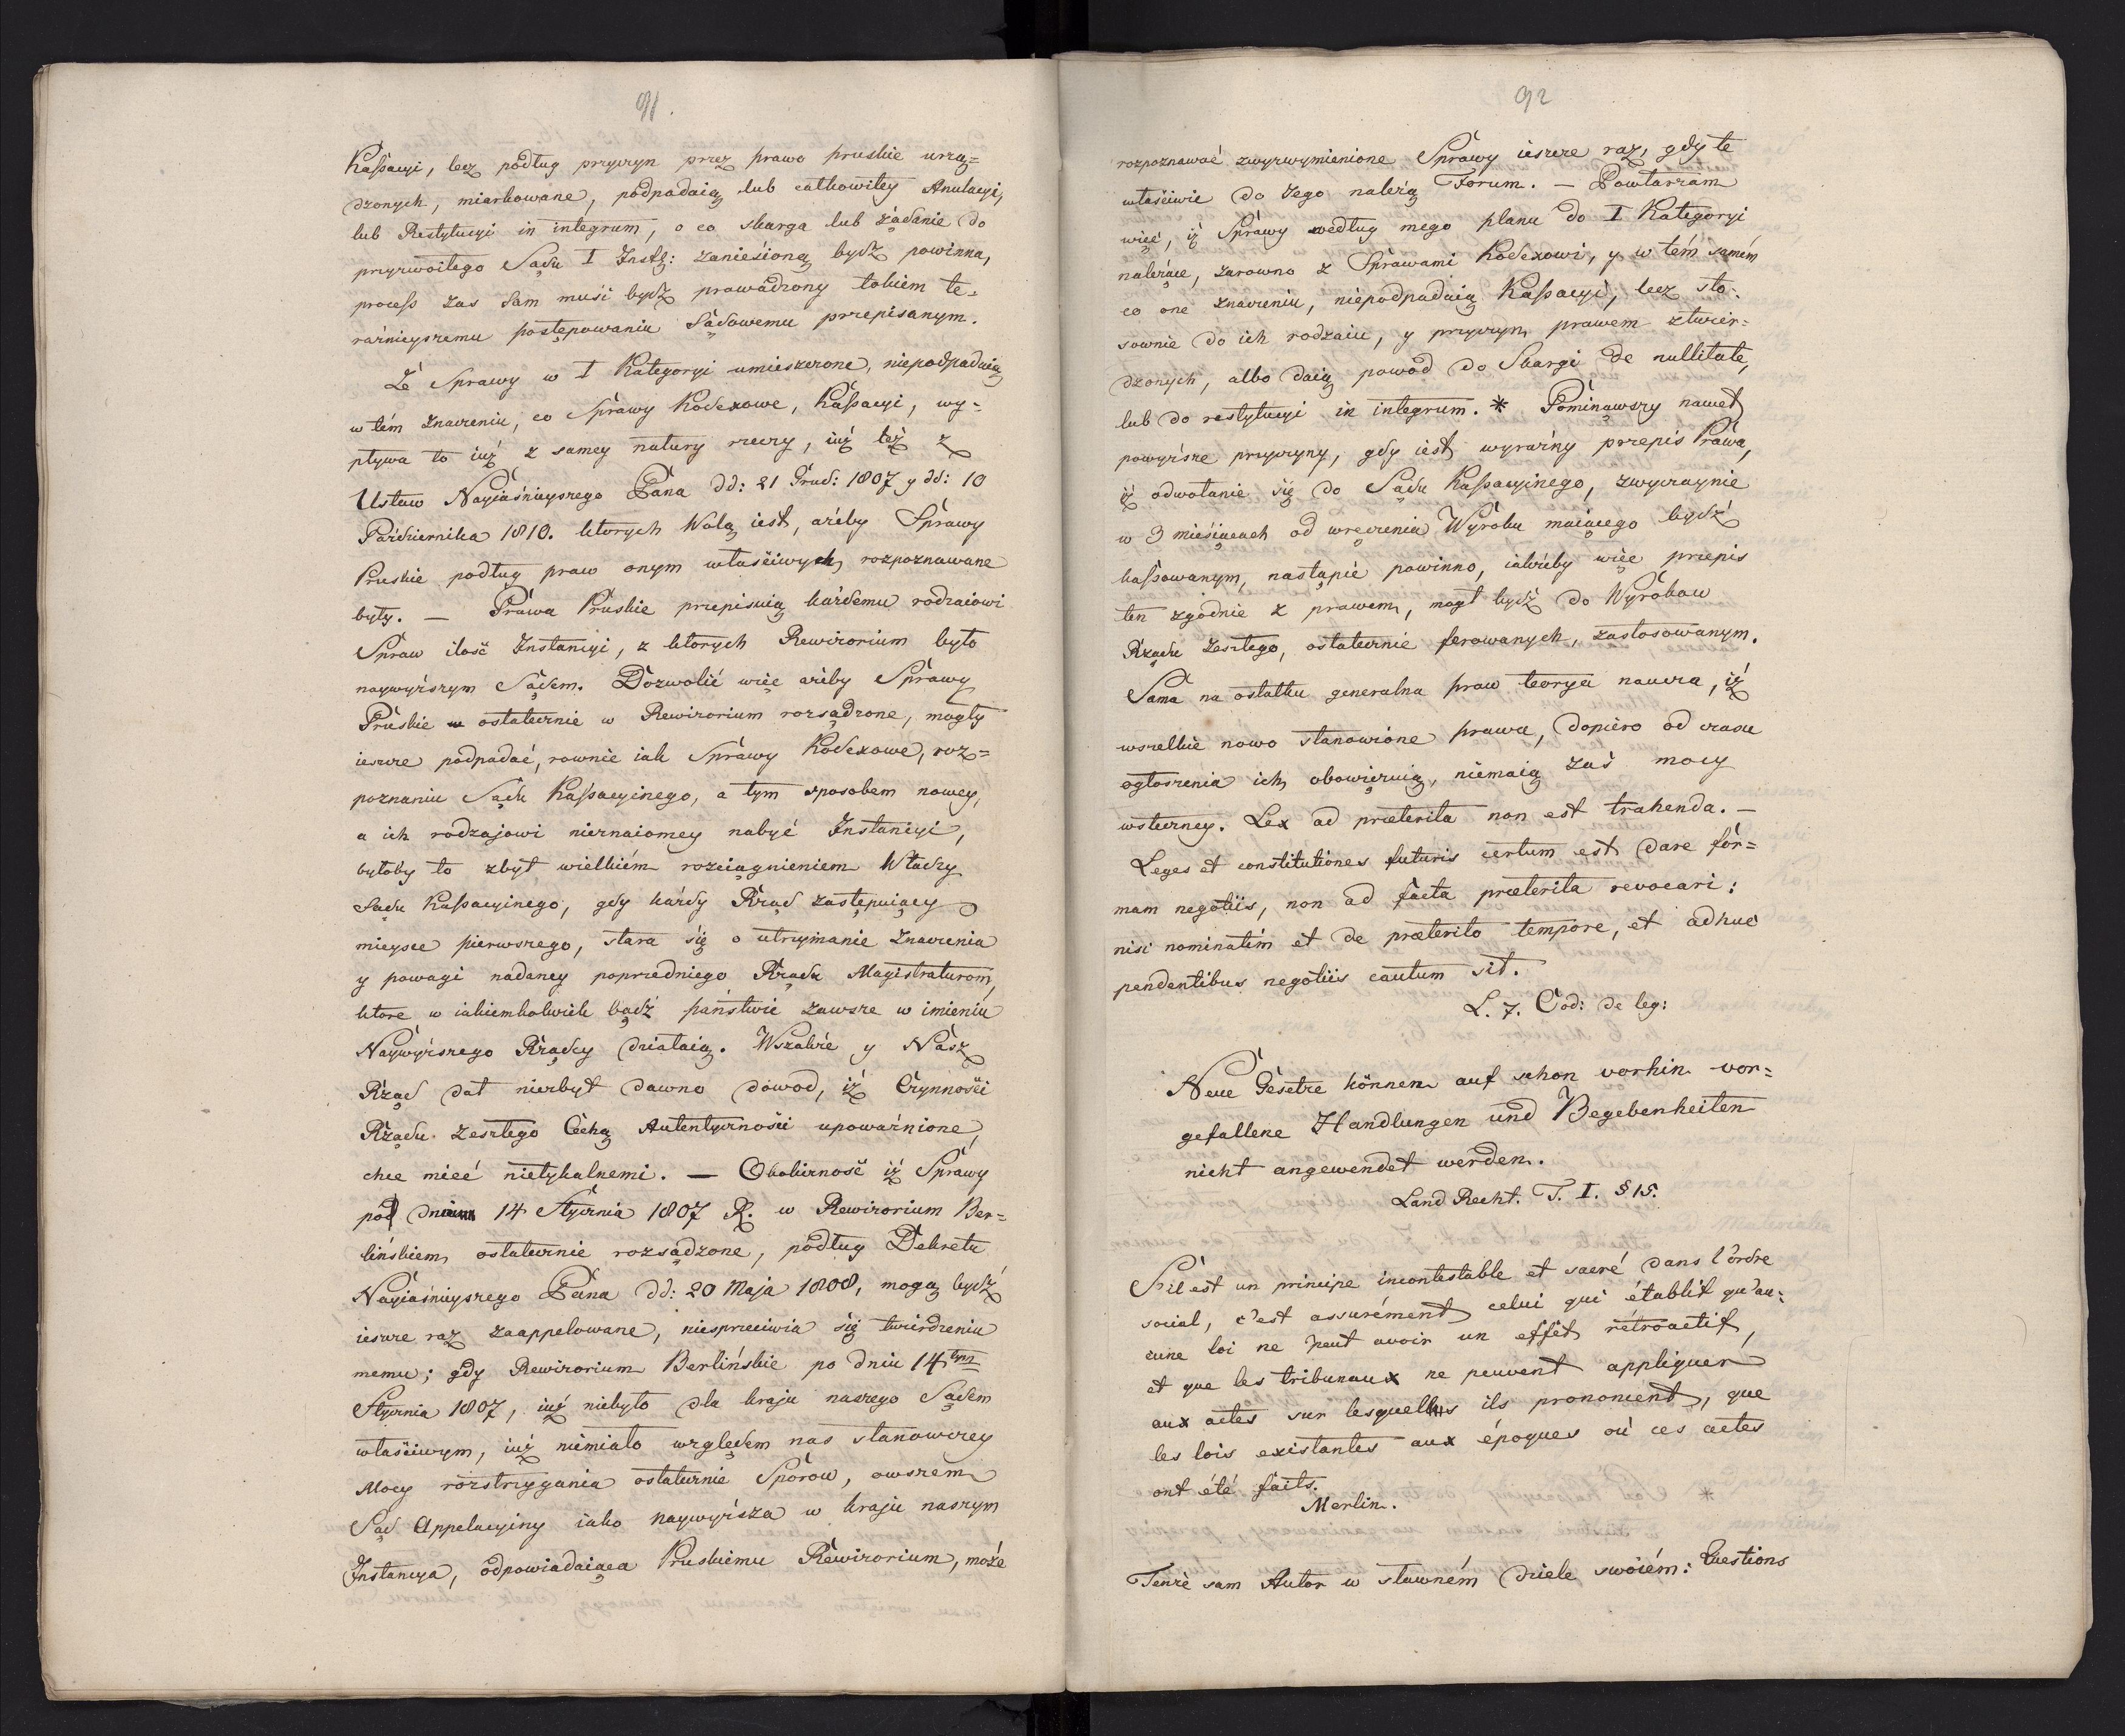 91.
Kassacyi, lecz podług przyczyn przez prawo pruskie urzą=
dzonych, miarkowane, podpadaią lub całkowitey Anulacyi,
lub Restytucyi in integrum, o co skarga lub żądanie do
przyzwoitego Sądu I Insty: zaniesioną bydź powinna,
process zas sam musi bydź prowadzony tokiem te=
raźnieyszemu postępowaniu Sądowemu przepisanym.
Że Sprawy w I Kategoryi umieszczone, niepodpadaią
w tém znaczeniu, co Sprawy Kodexowe, Kassacyi, wy=
pływa to iuż z samey natury rzeczy, iuż też z
Ustaw Nayiaśnieyszego Pana dd: 21 Grud: 1807 y dd: 10
Października 1810. ktorych Wolą iest, ażeby Sprawy
Pruskie podług praw onym właściwych, rozpoznawane
były. — Prawa Pruskie przepisuią każdemu rodzaiowi
Spraw ilość Instancyi, z ktorych Rewizorium było
naywyższym Sądem. Dozwolić więc ażeby Sprawy
Pruskie ostatecznie w Rewizorium rozsądzone, mogły
ieszcze podpadać, rownie iak Sprawy Kodexowe, roz=
poznaniu Sądu Kassacyinego, a tym sposobem nowey,
a ich rodzajowi nieznaiomey nabyć Instancyi,
byłoby to zbyt wielkiém rozciągnieniem Władzy
Sądu Kassacyinego, gdy każdy Rząd zastępuiący
mieysce pierwszego, stara się o utrzymanie znaczenia
y powagi nadaney poprzedniego Rządu Magistraturom,
ktore w iakiemkolwiek bądź państwie zawsze w imieniu
Naywyższego Rządcy działaią. Wszakże y Nasz
Rząd dał niezbyt dawno dowod, iż Czynności
Rządu zeszłego Cechą Autentyczności upoważnione,
chce mieć nietykalnemi. — Okoliczność iż Sprawy
pod dniem 14 Stycznia 1807 R. w Rewizorium Ber=
lińskiem ostatecznie rozsądzone, podług Dekretu
Nayiaśnieyszego Pana dd: 20 Maja 1808, mogą bydź
ieszcze raz zaappelowane, niesprzeciwia się twierdzeniu
memu; gdy Rewizorium Berlińskie po dniu 14tym
Stycznia 1807, iuż niebyło dla kraju naszego Sądem
właściwym, iuż niemiało względem nas stanowczey
Mocy rozstrzygania ostatecznie Sporow, owszem
Sąd Appelacyiny iako naywyższa w kraju naszym
Instancya, odpowiadaiąca Pruskiemu Rewizorium, może
92
rozpoznawać zwyżwymienione Sprawy ieszcze raz, gdy te
właściwie do Jego należą Forum. — Powtarzam
więc, iż Sprawy według mego planu do I Kategoryi
należące, zarowno z Sprawami Kodexowi, y w tém samém
co one znaczeniu, niepodpadaią Kassacyi, lecz sto=
sownie do ich rodzaiu, y przyczyn prawem ztwier=
dzonych, albo daią powod do Skargi de nullitate,
lub do restytucyi in integrum. * Pominąwszy nawet
powyższe przyczyny, gdy iest wyraźny przepis Prawa,
iż odwołanie się do Sądu Kassacyinego, zwyczaynie
w 3 miesiącach od wręczenia Wyroku maiącego bydź
kassowanym, nastąpić powinno, iakżeby więc przepis
ten zgodnie z prawem, mogł bydź do Wyrokow
Rządu zeszłego, ostatecznie ferowanych, zastosowanym.
Sama na ostatku generalna praw teorya naucza, iż
wszelkie nowo stanowione prawa, dopiero od czasu
ogłoszenia ich obowięzuią, niemaią zaś mocy
wsteczney. Lex ad præterita non est trahenda. —
Leges et constitutiones futuris certum est dare for=
mam negotiis, non ad facta præterita revocari:
nisi nominatim et de præterito tempore, et adhuc
pendentibus negotiis cautum sit.
L. 7. Cod: de leg:
Neue Gesetze können auf schon vorhin vor=
gefallene Handlungen und Begebenheiten
nicht angewendet werden.
Land Recht. T. I. § 15.
S'il est un principe incontestable et sacré dans l'ordre
social, c'est assurément celui qui établit qu'au=
cune loi ne peut avoir un effet rétroactif,
et que les tribunaux ne peuvent appliquer
aux actes sur lesquells ils prononcent, que
les lois existantes aux époques où ces actes
ont été faits.
Merlin.
Tenże sam Autor w sławném dziele swoiém: Questions